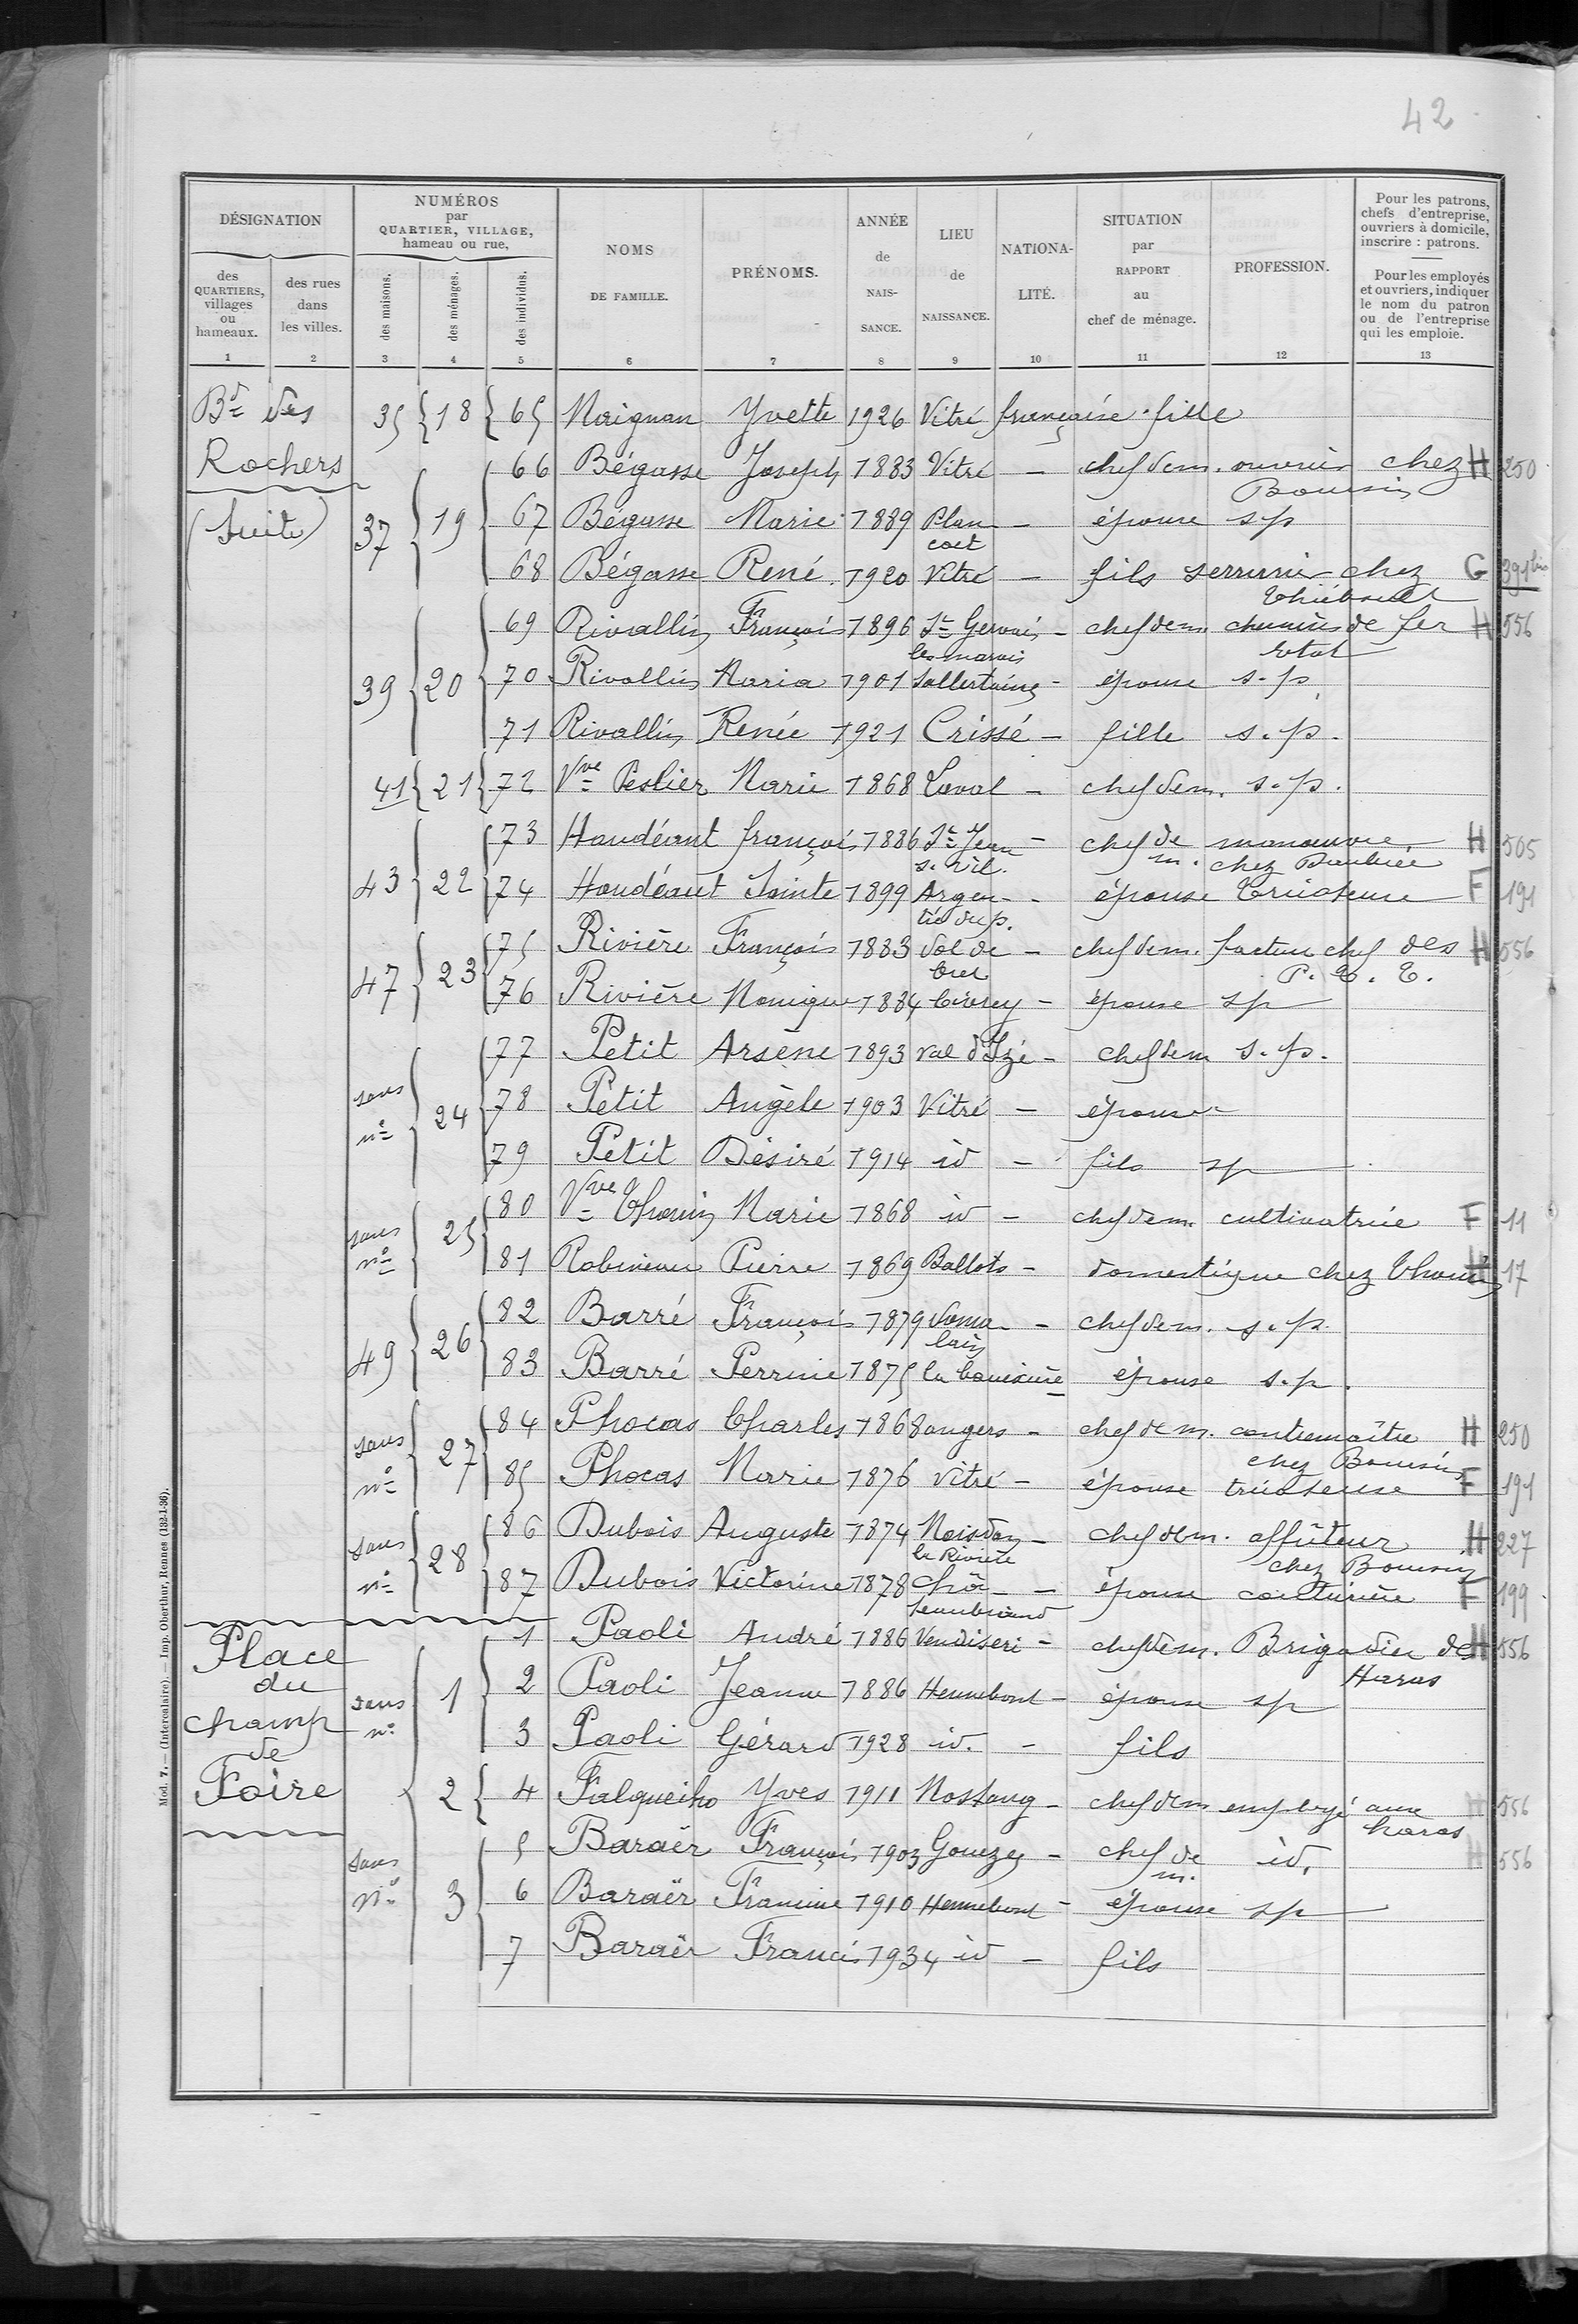 42
DÉSIGNATION
NUMÉROS
par
QUARTIER, VILLAGE,
hameau ou rue,
des QUARTIERS, villages ou hameaux.
des rues dans les villes.
des maisons.
des ménages.
des individus.
NOMS DE FAMILLE.
PRÉNOMS.
ANNÉE de NAIS-SANCE.
LIEU de NAISSANCE.
NATIONA-LITÉ.
SITUATION par RAPPORT au chef de ménage.
PROFESSION.
Pour les patrons, chefs d'entreprise, ouvriers à domicile, inscrire : patrons.
Pour les employés et ouvriers, indiquer le nom du patron ou de l'entreprise qui les emploie.
1 2 3 4 5 6 7 8 9 10 11 12 13
Bd des Rochers (Suite)
35 18 65 Maignan Yvette 1926 Vitré française fille
37 19 66 Bégasse Joseph 1883 Vitré – chef de m. ouvrier chez Boursin H 250
67 Bégasse Marie 1889 Plancoët – épouse sp
68 Bégasse René 1920 Vitré – fils serrurier chez Thiébault G 391 bis
39 20 69 Rivallin François 1896 St Gervais les marais – chef de m chemins de fer Etat H 556
70 Rivallin Maria 1901 Sallertaine – épouse s.p.
71 Rivallin Renée 1921 Crissé – fille s.p.
41 21 72 Vve Peslier Marie 1868 Laval – chef de m. s.p.
43 22 73 Haudéant françois 1886 St Jean s. Vil. – chef de m. manœuvre chez H 505
74 Haudéant Sainte 1899 Argentré du p. – épouse tricoteuse F 191
47 23 75 Rivière François 1883 Dol de Bret – chef de m. facteur chef des P.T.T. H 556
76 Rivière Monique 1884 – épouse sp
sans no 24 77 Petit Arsène 1893 Val d'Izé – chef de m s.p.
78 Petit Angèle 1903 Vitré – épouse
79 Petit Désiré 1914 id – fils sp
sans no 25 80 Vve Thomin Marie 1868 id – chef de m. cultivatrice F 11
81 Robineau Pierre 1869 Ballots – domestique chez Thomin H 17
49 26 82 Barré François 1879 Domalain – chef de m. s.p.
83 Barré Perrine 1875 la bouëxière – épouse s.p.
sans no 27 84 Phocas Charles 1868 angers – chef de m. contremaître chez Boursin H 250
85 Phocas Marie 1876 Vitré – épouse tricoteuse F 191
sans no 28 86 Dubois Auguste 1874 Moisdon la Rivière – chef de m. affûteur chez Boursin H 227
87 Dubois Victorine 1878 Châteaubriand – épouse couturière F 199
Place du champ de Foire
sans no 1 1 Paoli André 1886 Vendiseri – chef de m. Brigadier de Haras H 556
2 Paoli Jeanne 1886 Hennebont – épouse sp
3 Paoli Gérard 1928 id. – fils
2 4 Falqueiho Yves 1911 Nostang – chef de m employé aux haras H 556
sans No 3 5 Baraër François 1903 Gouezey – chef de m. id. H 556
6 Baraër Francine 1910 Hennebont – épouse sp
7 Baraër Francis 1934 id – fils
Mod. 7. — (Intercalaire). — Imp. Oberthur, Rennes (182-1-36).